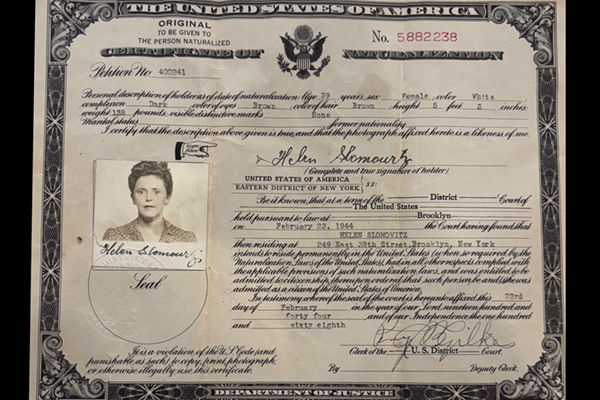 THE UNITED STATES OF AMERICA
ORIGINAL
TO BE GIVEN TO
THE PERSON NATURALIZED
No. 5882238
CERTIFICATE OF NATURALIZATION
Petition No. 400241
Personal description of holder as of date of naturalization: Age 39 years, sex Female color White
complexion Dark color of eyes Brown color of hair Brown height 5 feet 2 inches,
weight 138 pounds, visible distinctive marks None
Marital status former nationality
I certify that the description above given is true, and that the photograph affixed hereto is a likeness of me.
Helen Slomowitz
(Complete and true signature of holder)
UNITED STATES OF AMERICA
EASTERN DISTRICT OF NEW YORK SS:
Be it known, that at a term of the District Court of
The United States
held pursuant to law at Brooklyn
on February 23, 1944 the Court having found that
HELEN SLOMOWITZ
then residing at 249 East 38th Street, Brooklyn, New York
intends to reside permanently in the United States (when so required by the
Naturalization Laws of the United States), had in all other respects complied with
the applicable provisions of such naturalization laws, and was entitled to be
admitted to citizenship, thereupon ordered that such person be and (s)he was
admitted as a citizen of the United States of America.
In testimony whereof the seal of the court is hereunto affixed this 23rd
day of February in the year of our Lord nineteen hundred and
forty four and of our Independence the one hundred
and sixty eighth
Helen Slomowitz
Seal
Clerk of the U. S. District Court.
By Deputy Clerk.
It is a violation of the U.S. Code (and
punishable as such) to copy, print, photograph,
or otherwise illegally use this certificate.
DEPARTMENT OF JUSTICE